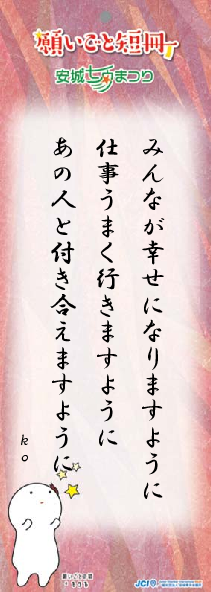 願いごと短冊
安城七夕まつり
みんなが幸せになりますように
仕事うまく行きますように
あの人と付き合えますように
ko
願いごと短冊
JCI